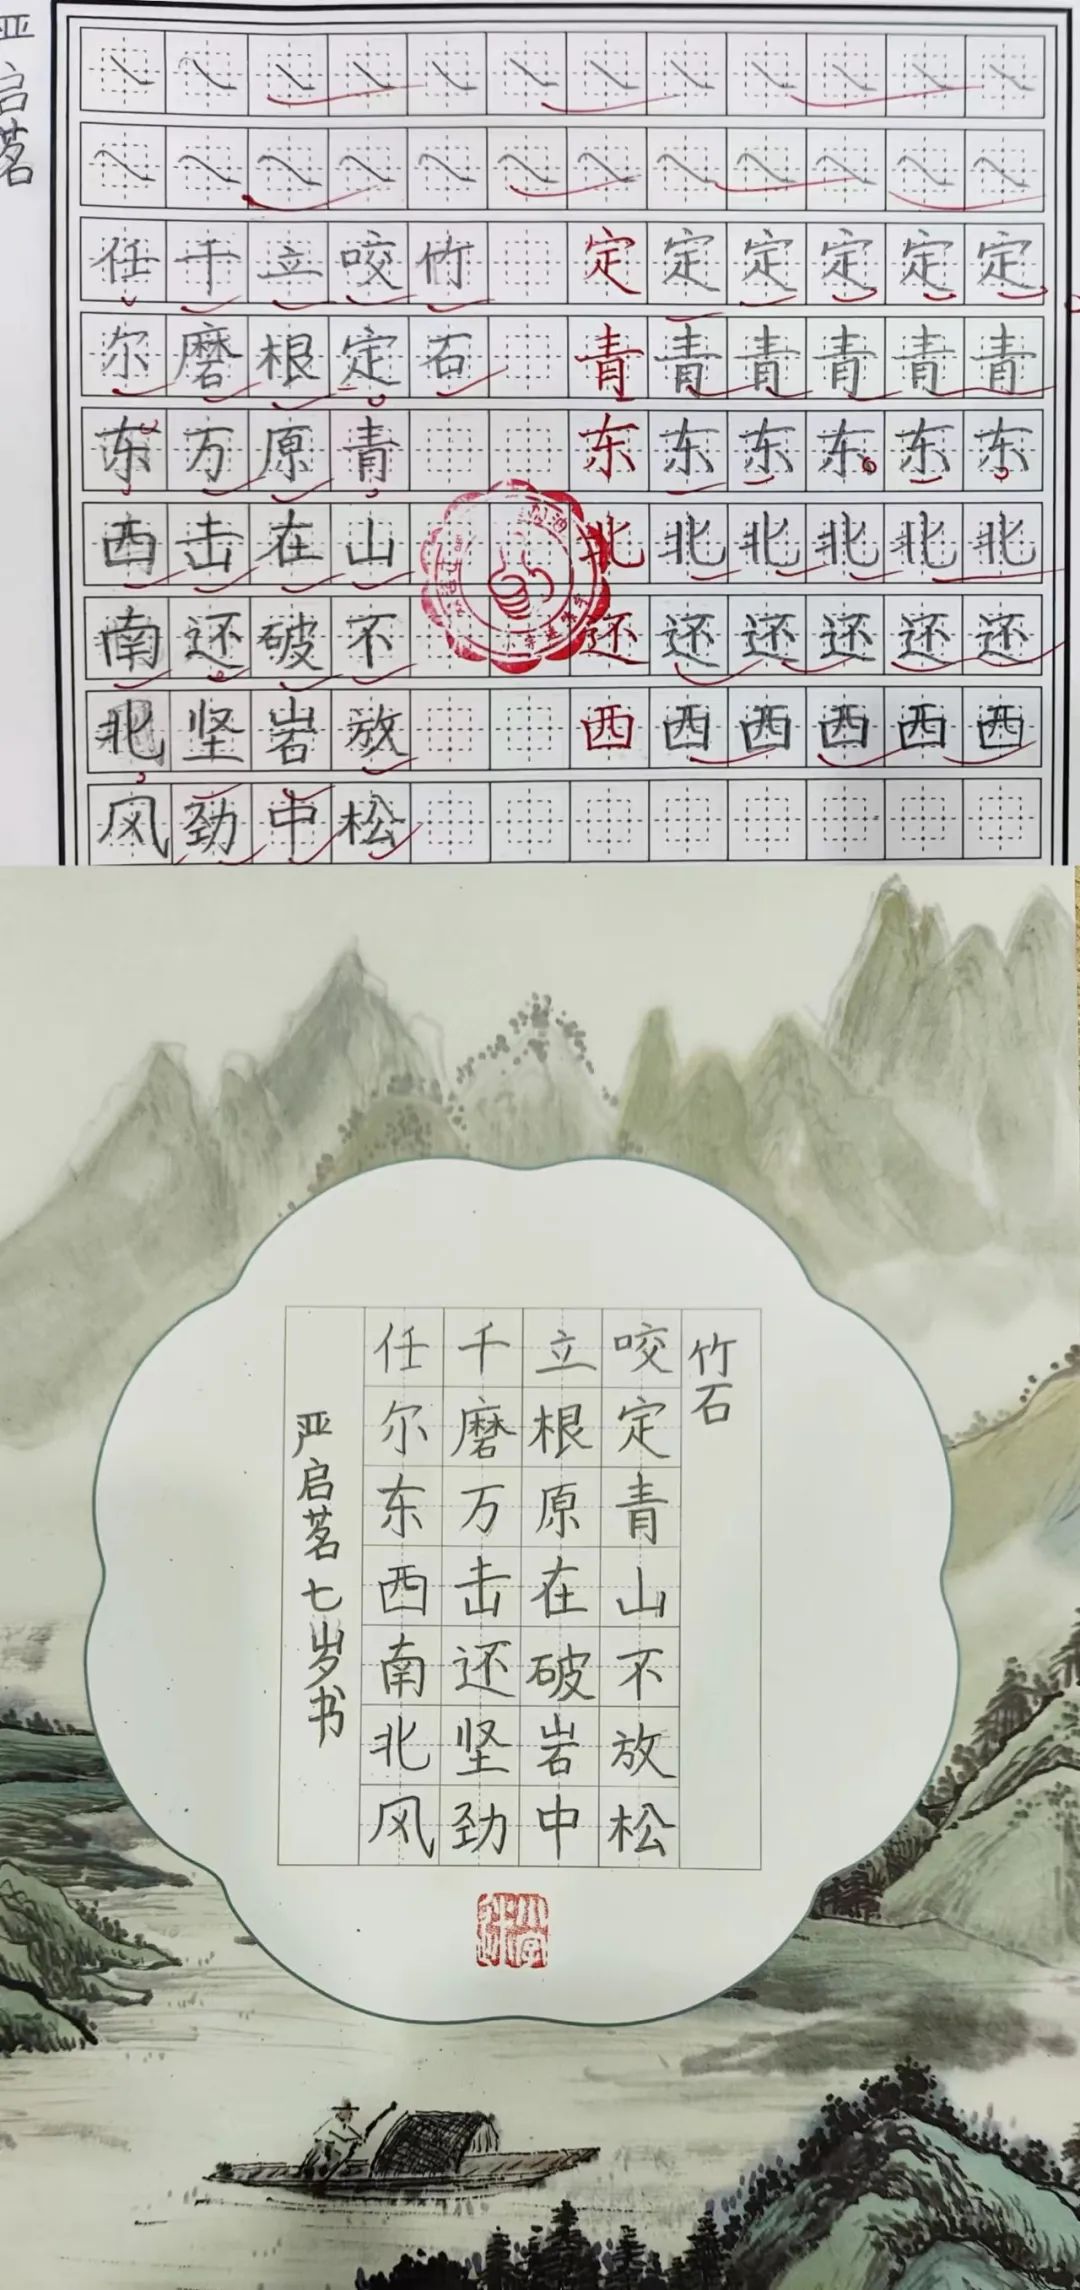 严启茗
任千立咬竹定定定定定定
尔磨根定石青青青青青青
东万原青东东东东东东
西击在山北北北北北北
南还破不还还还还还还
北坚岩放西西西西西西
风劲中松
竹石
咬定青山不放松
立根原在破岩中
千磨万击还坚劲
任尔东西南北风
严启茗七岁书